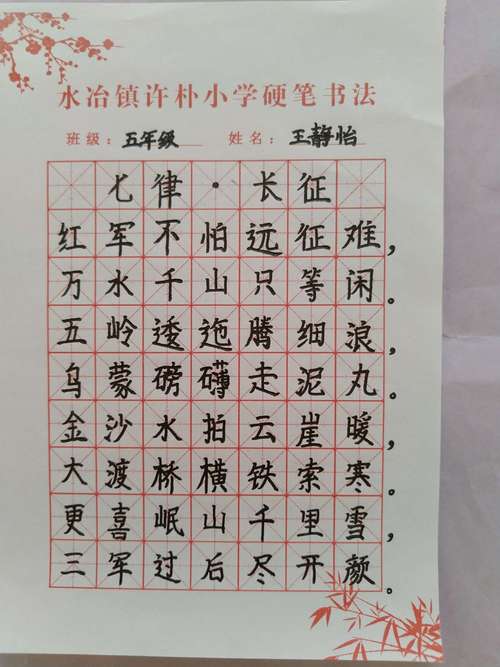 水冶镇许朴小学硬笔书法
班级：五年级 姓名：王静怡
七律·长征
红军不怕远征难，
万水千山只等闲。
五岭逶迤腾细浪，
乌蒙磅礴走泥丸。
金沙水拍云崖暖，
大渡桥横铁索寒。
更喜岷山千里雪，
三军过后尽开颜。